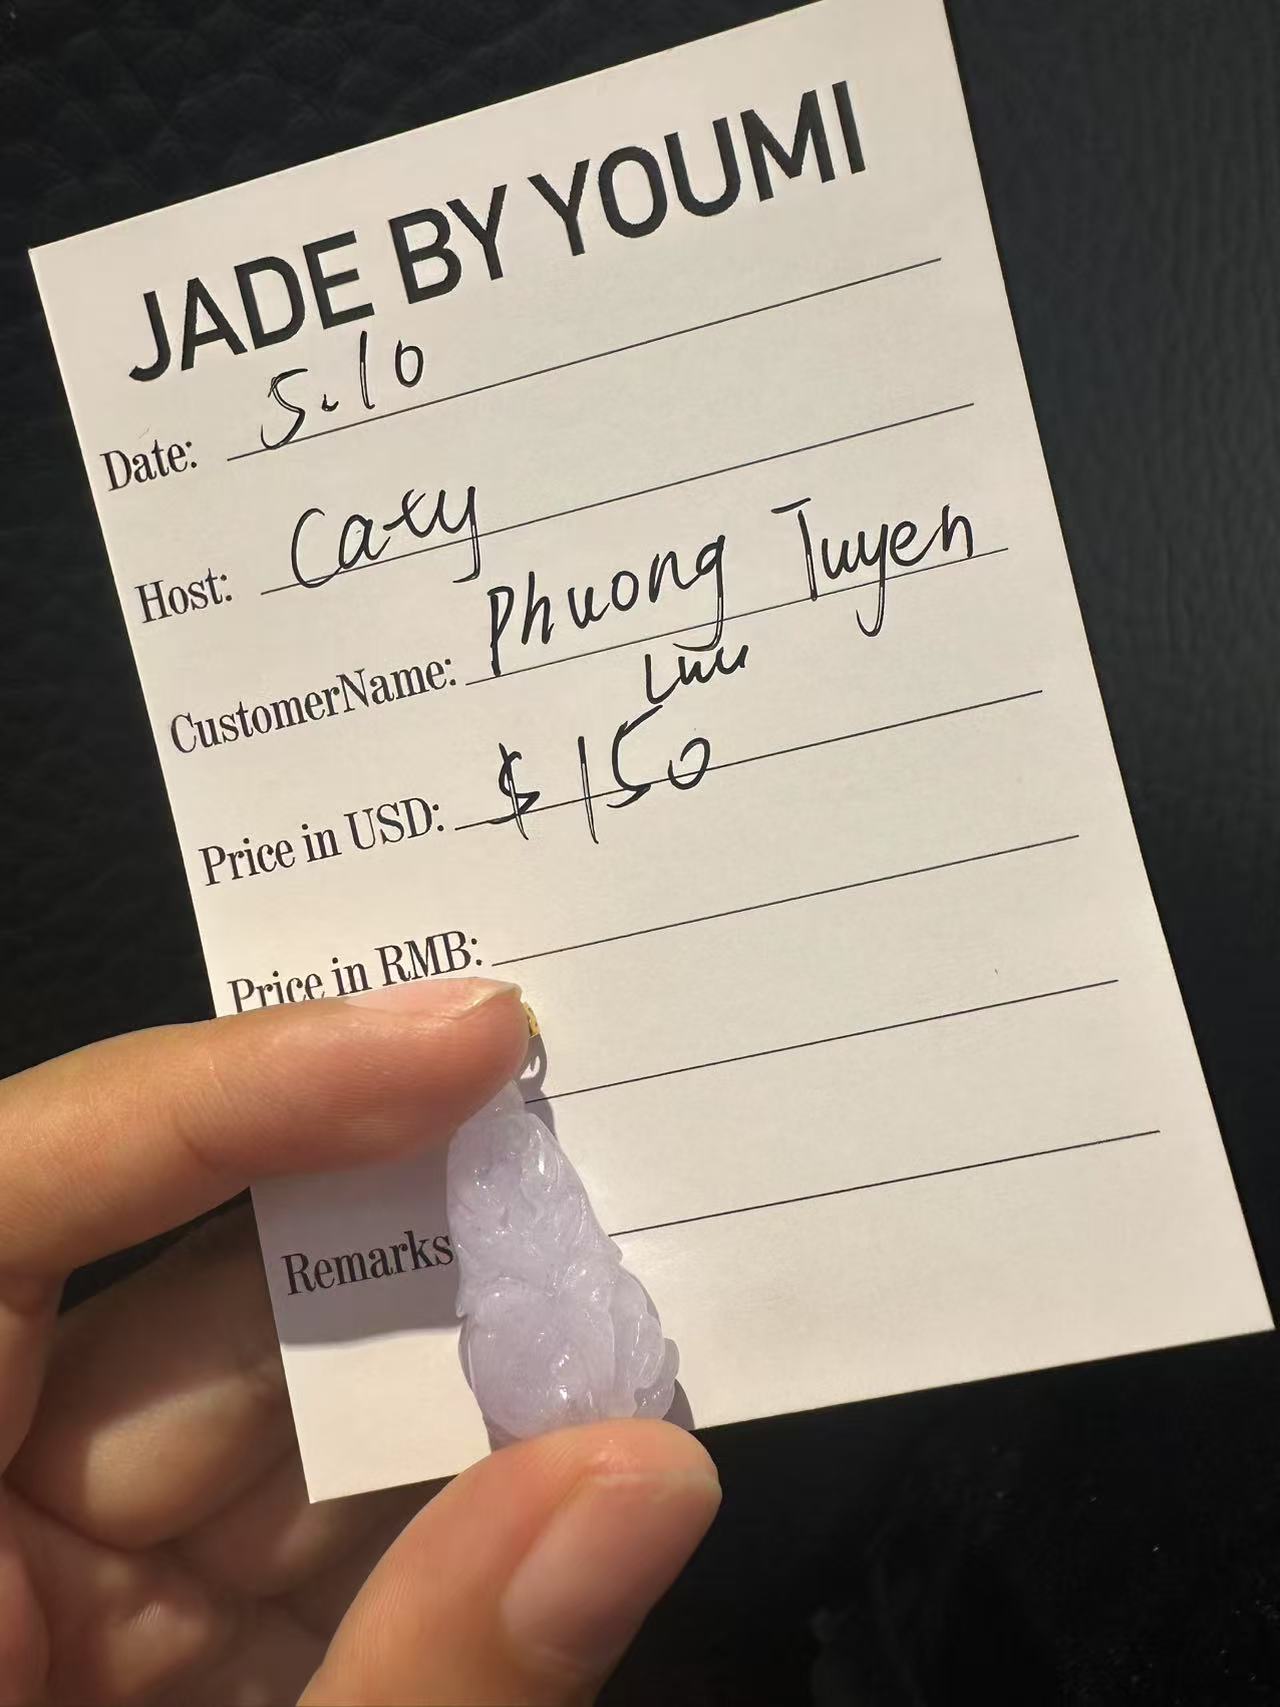 JADE BY YOUMI
Date: 5.10
Host: Caty
CustomerName: Phuong Tuyen
Luu
Price in USD: $150
Price in RMB:
Remarks